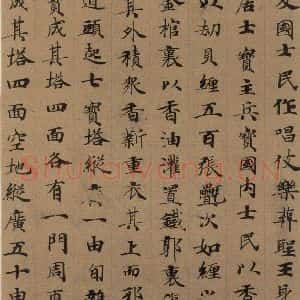 及國士伎樂葬聖王身
居士寶主兵寶國内士民以香
以劫貝纏五百張氎次如纏以
金棺裏以香油灌置鐵槨裏
其外積衆香薪重衣其上而耶
道頭起七寶塔縱廣一由旬雜
寶成其塔四面各有一門周帀
成其塔四面空地縱廣五十由